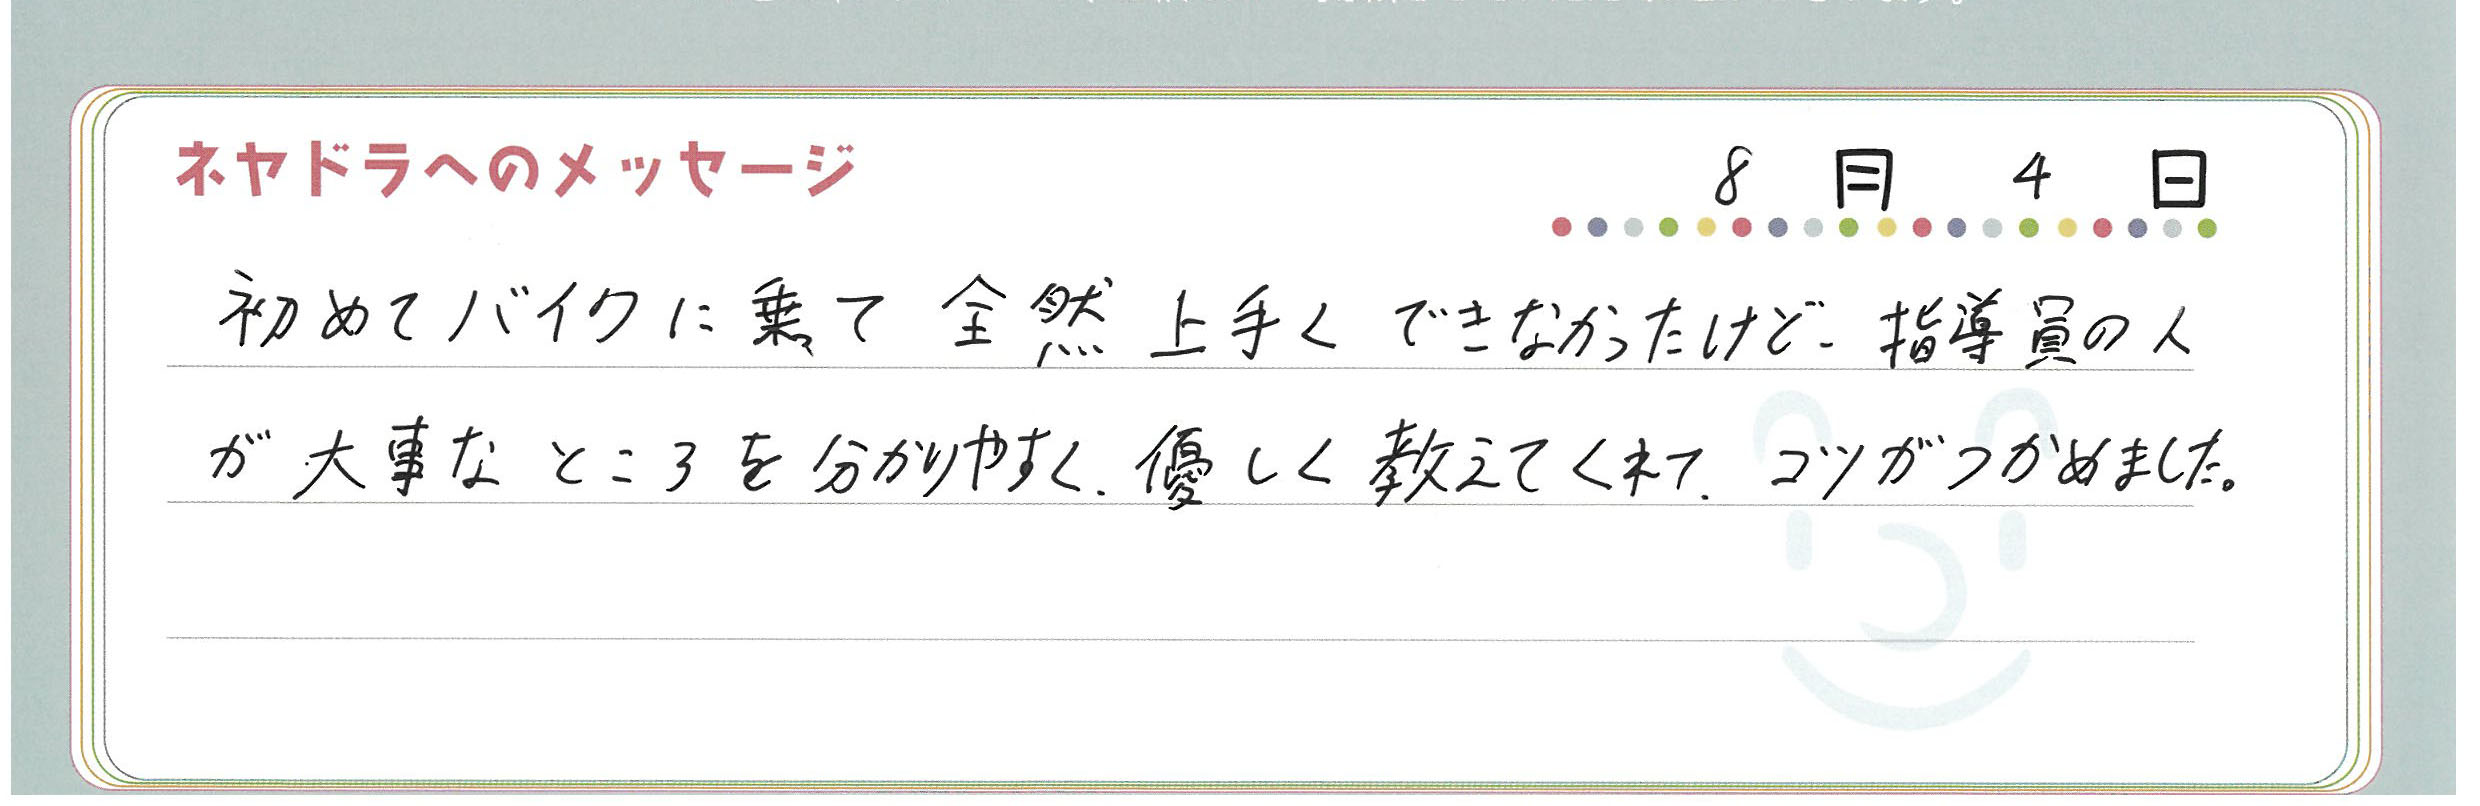 ネヤドラへのメッセージ
8月4日
初めてバイクに乗て全然上手くできなかったけど、指導員の人
が大事なところを分かりやすく、優しく教えてくれて、コツがつかめました。